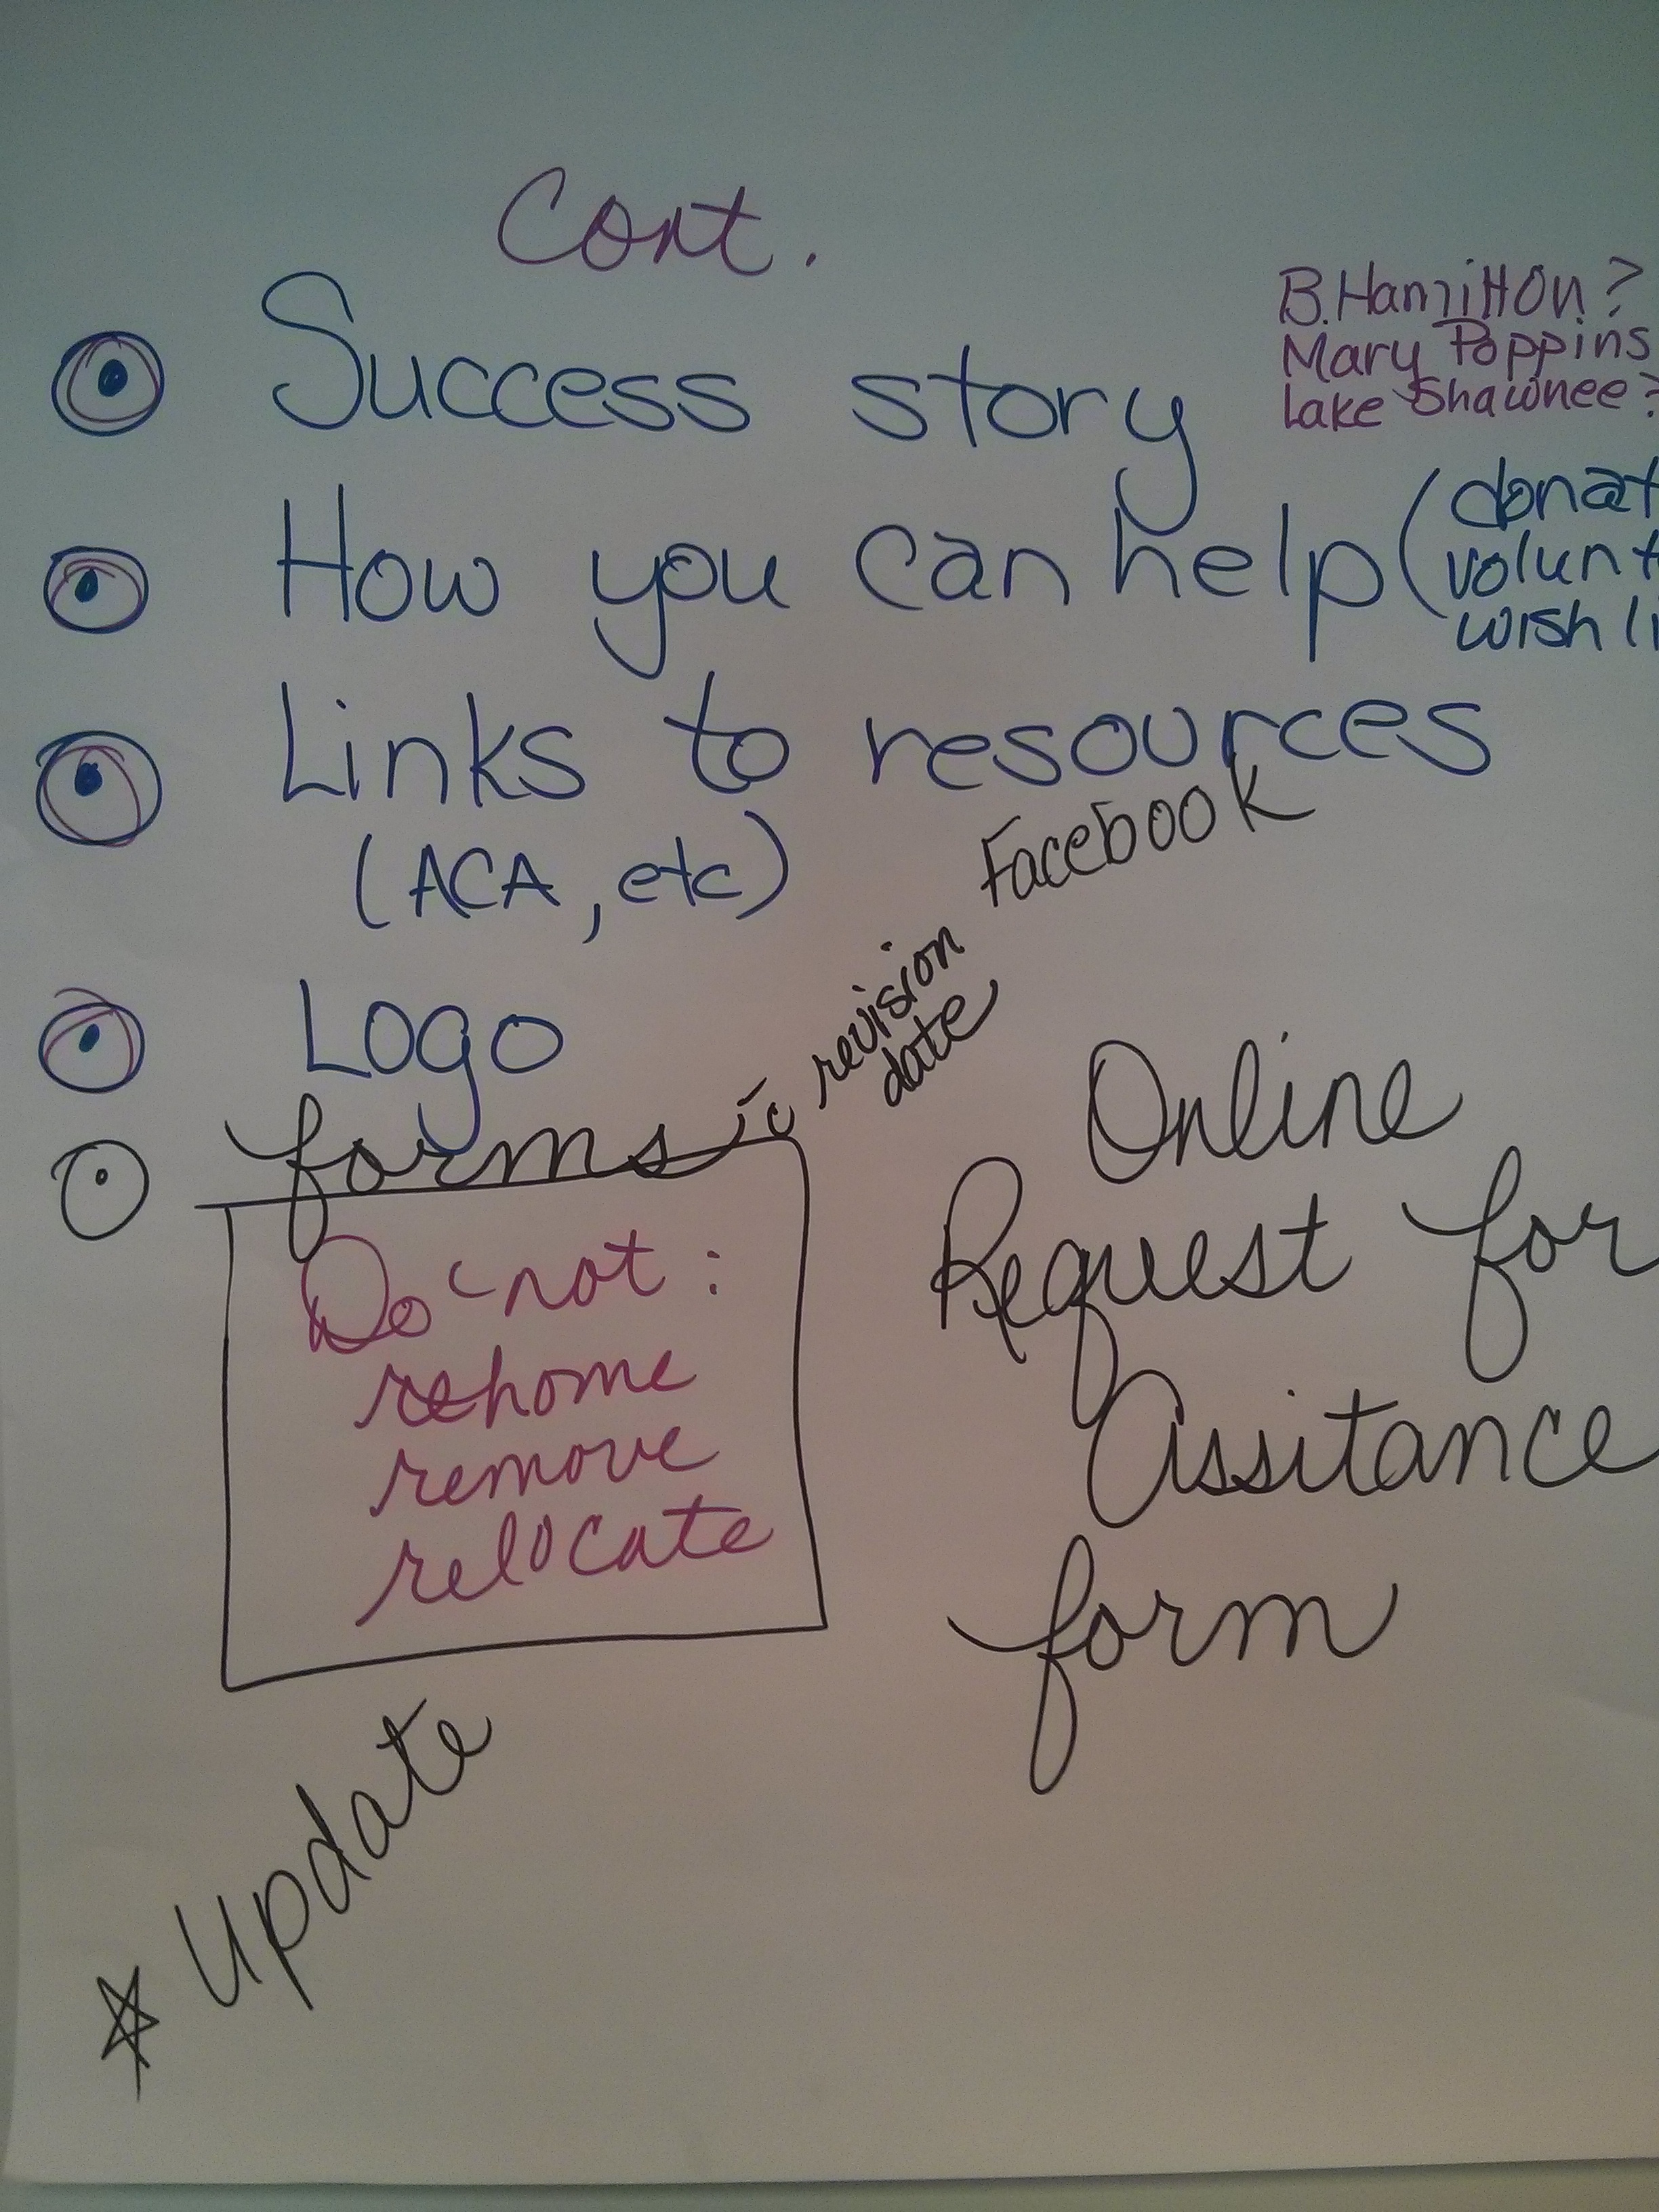 Cont.
B. Hamilton?
Mary Poppins
Lake Shawnee?
Success story
How you can help (donat
volunt
wish li
Links to resources
(ACA, etc)
Facebook
Logo
revision
date
forms
Do not:
rehome
remove
relocate
Online
Request for
Assitance
form
Update